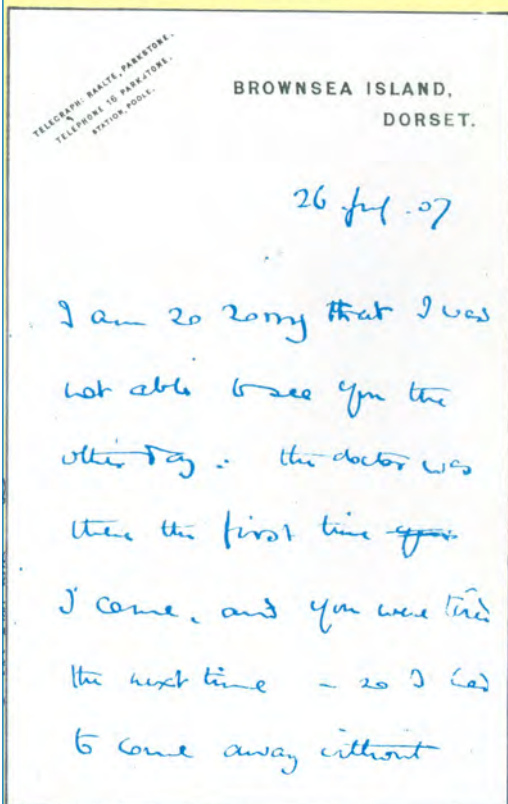 TELEGRAPH: RAALTE, PARKSTONE.
TELEPHONE 16 PARKSTONE.
STATION, POOLE.
BROWNSEA ISLAND,
DORSET.
26 July .07
I am so sorry that I was
not able to see you the
other day : the doctor was
there the first time
I came, and you were tired
the next time - so I had
to come away without